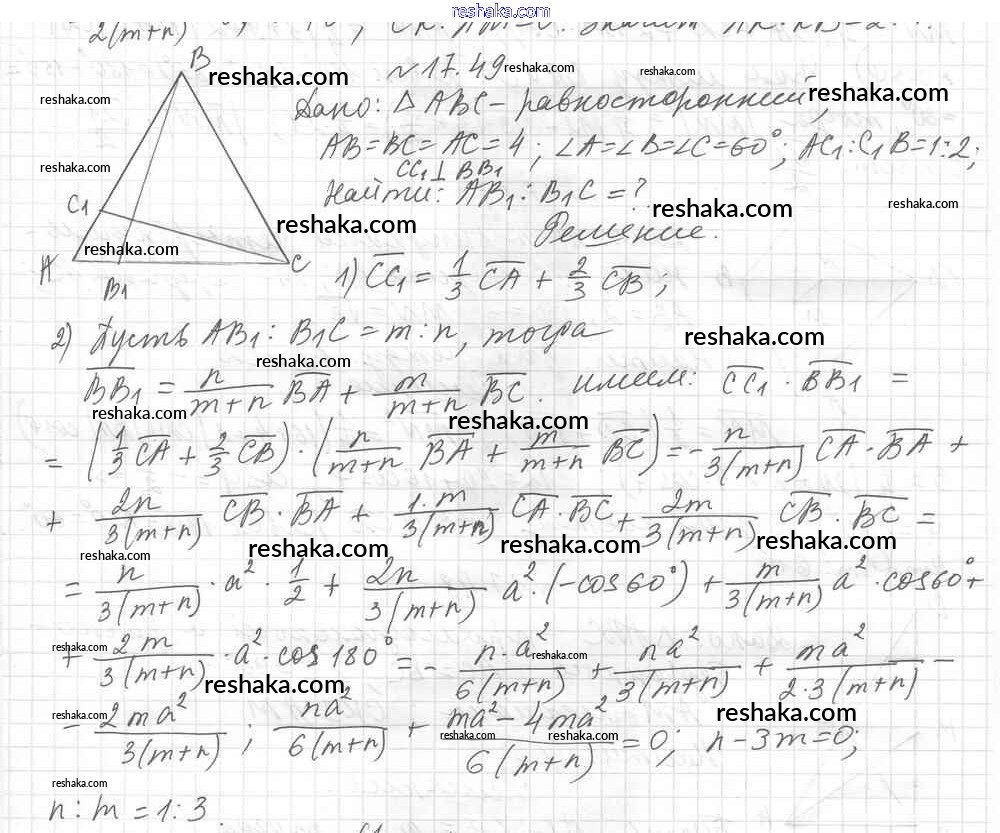 reshaka.com
2(m+n)
№17.49
Дано: △ABC - равносторонний,
AB=BC=AC=4; ∠A=∠B=∠C=60°; AC₁:C₁B=1:2;
CC₁⊥BB₁
Найти: AB₁:B₁C=?
Решение.
B
C₁
A
B₁
C
1) CC₁ = 1/3 CA + 2/3 CB;
2) Пусть AB₁:B₁C=m:n, тогда
BB₁ = n/(m+n) BA + m/(m+n) BC. имеем: CC₁ · BB₁ =
= (1/3 CA + 2/3 CB) · (n/(m+n) BA + m/(m+n) BC) = - n/3(m+n) CA · BA +
+ 2n/3(m+n) CB · BA + 1·m/3(m+n) CA · BC + 2m/3(m+n) CB · BC =
= n/3(m+n) · a² · 1/2 + 2n/3(m+n) a² · (-cos60°) + m/3(m+n) a² · cos60° +
+ 2m/3(m+n) · a² · cos180° = - n·a²/6(m+n) + na²/3(m+n) + ma²/2·3(m+n) -
= 2ma²/3(m+n); na²/6(m+n) + ma²-4ma²/6(m+n) = 0; n-3m=0;
n:m=1:3.